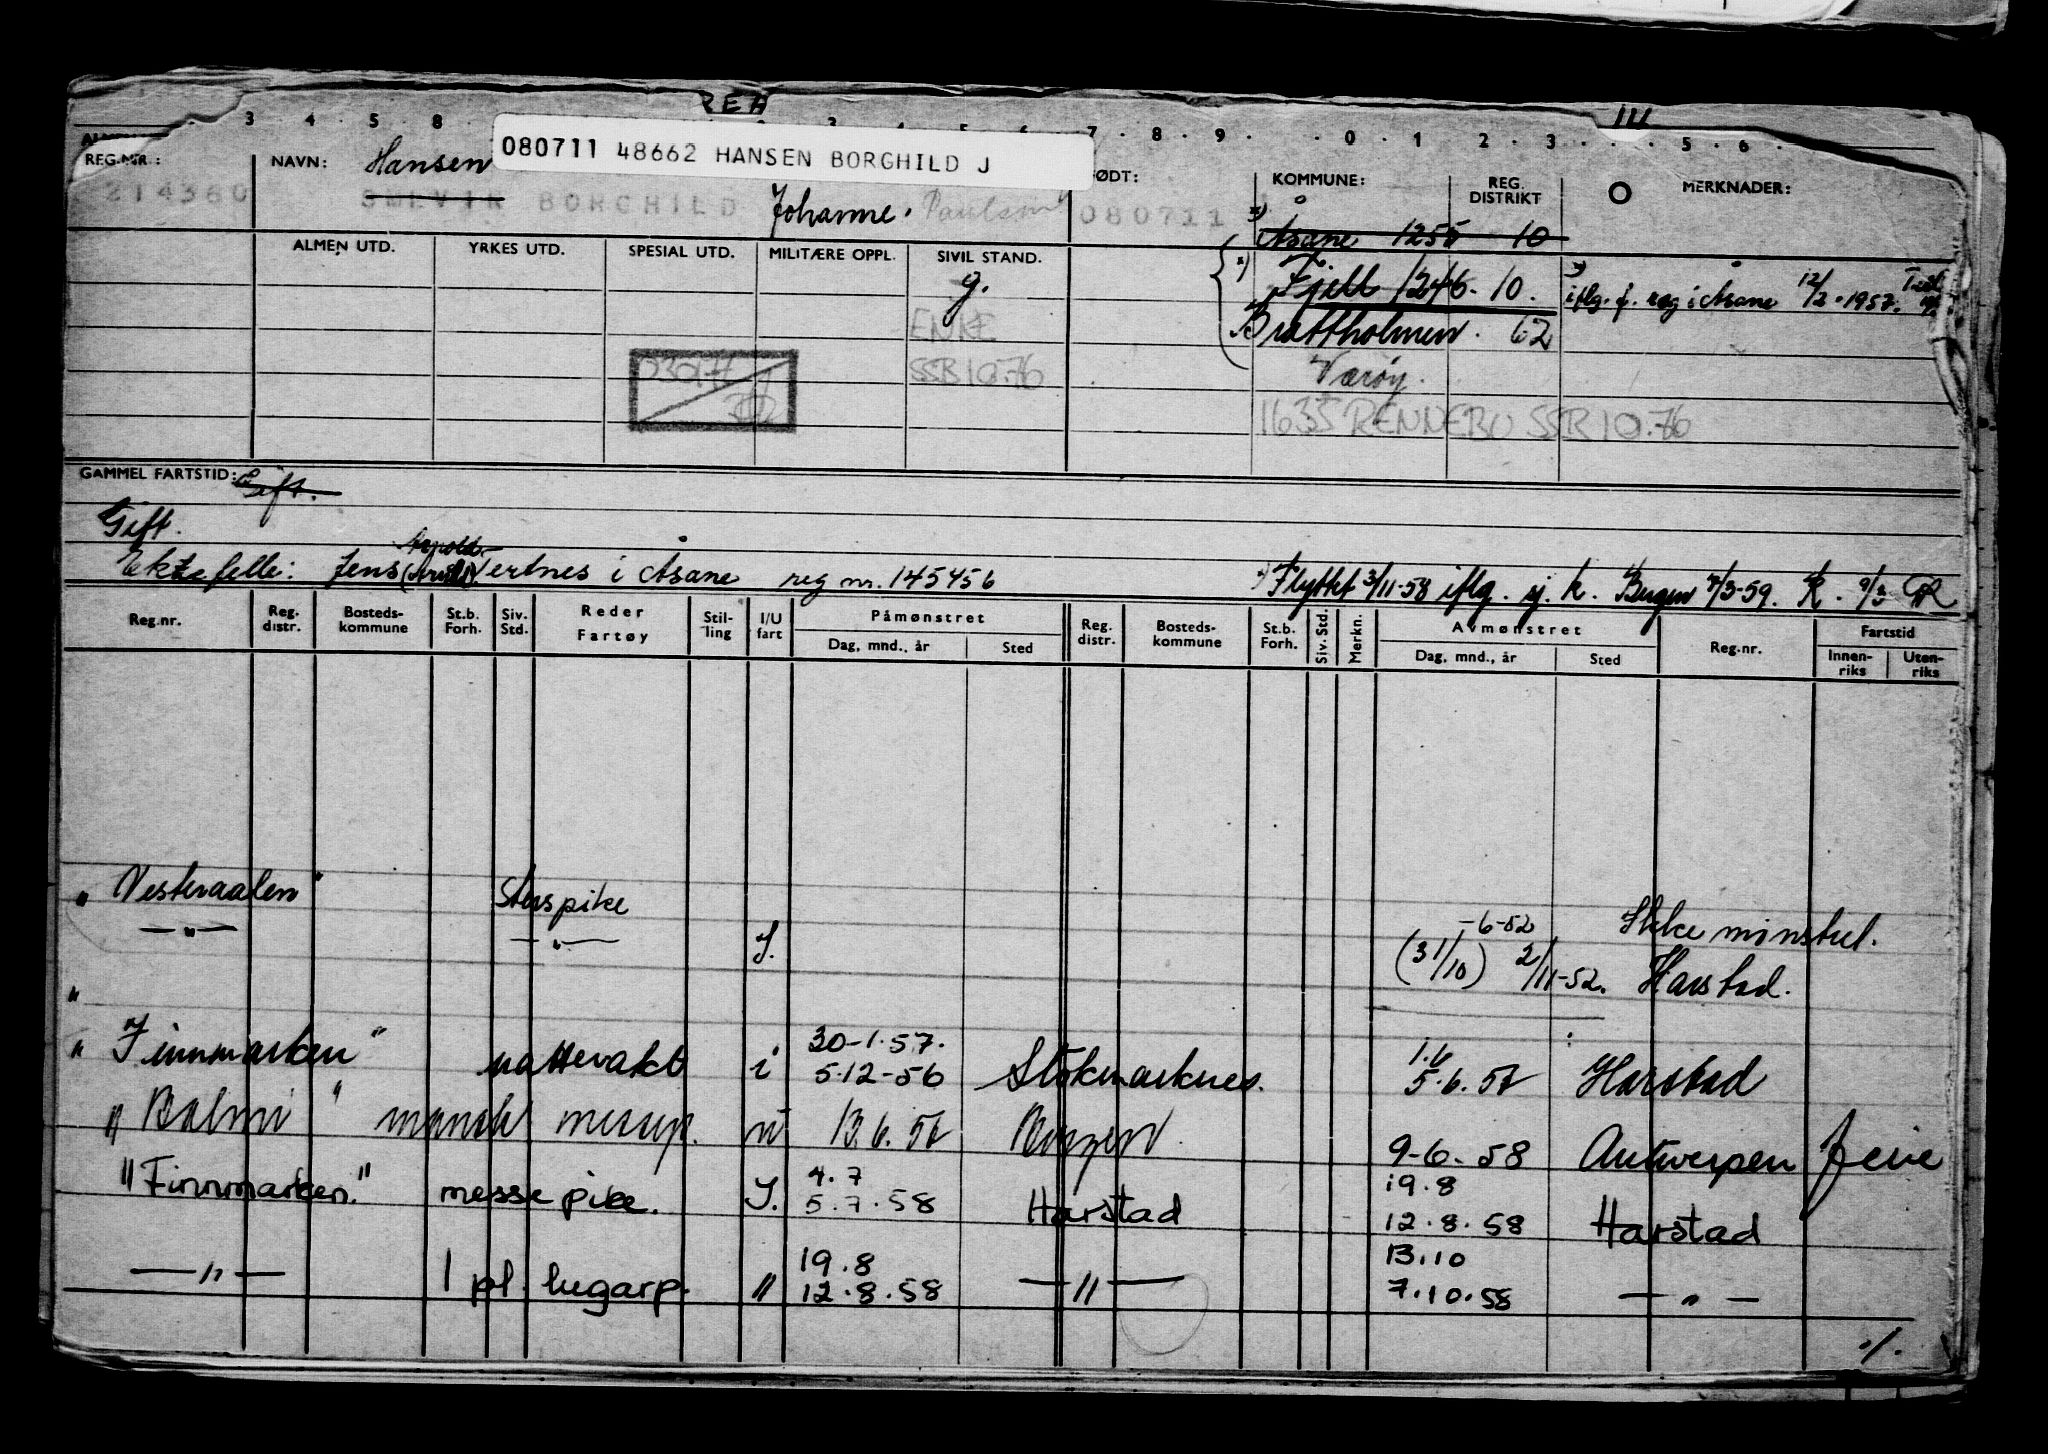 REA
3 4 5 8 7 . 8 . 9 . 0 . 1 2 . 3 . 5 . 6 .
080711 48662 HANSEN BORGHILD J
REG.NR.: NAVN: Hansen FØDT: KOMMUNE: REG. DISTRIKT MERKNADER:
214360 SMEVIK BORGHILD Johanne. Paulsen 080711
x) Åsane 1255 10
ALMEN UTD. YRKES UTD. SPESIAL UTD. MILITÆRE OPPL. SIVIL STAND.
g. x) Fjell 1246. 10. iflg. f. reg i Åsane 12/2-1957.
ENKE Brattholmen. 62
SSB 10.76 Værøy.
1635 RENNEBU SSB 10.76
GAMMEL FARTSTID: Gift.
Gift.
Arnold
Ektefelle: Jens (Arvid) Vertnes i Åsane reg nr. 145456 Flyttet 3/11-58 iflg. sj. k. Bergen 7/3-59. K. 9/3
Reg.nr. Reg. distr. Bosteds-kommune St.b. Forh. Siv. Std. Reder Fartøy Stil-ling I/U fart Påmønstret Reg. distr. Bosteds-kommune St.b. Forh. Siv. Std. Merkn. Avmønstret Reg.nr. Fartstid
Dag, mnd., år Sted Dag, mnd., år Sted Innen-riks Uten-riks
" Vesteraalen" Stuepike
— " — — " — I. -6-52 Ikke mønstret.
(31/10) 2/11-52. Harstad.
30-1.57. 1.6
" Finnmarken" nattevakt i 5.12-56 Stokmarknes. 5.6.57 Harstad
" Balmi" mønstr messep. u 13.6.57 Bergen 9-6-58 Antwerpen ferie
4.7 19.8
" Finnmarken." messepike. I. 5.7.58 Harstad 12.8.58 Harstad
19.8 13.10
— " — 1 pl. lugarp. " 12.8.58 — " — 7.10.58 — " —
./.